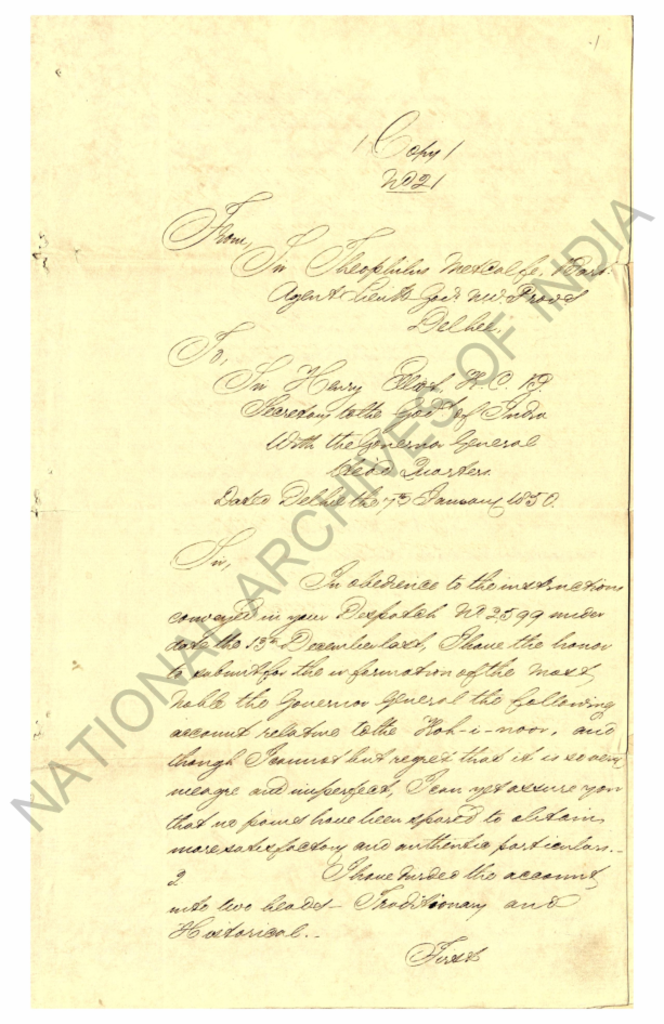 1
/ Copy /
No 21
From,
Sir Theophilus Metcalfe, Bart.
Agent Lieut. Govr. N.W. Provs
Delhee.
To,
Sir Henry Elliot, K. C. B.
Secretary to the Govt. of India
With the Governor General
Head Quarters.
Dated Delhie the 7th January 1850.
Sir,
In obedience to the instructions
conveyed in your Despatch No 2599 under
date the 13th December last, I have the honor
to submit for the information of the Most
Noble the Governor General the following
account relative to the Koh-i-noor, and
though I cannot but regret that it is so very
meagre and imperfect, I can yet assure you
that no pains have been spared to obtain
more satisfactory and authentic particulars.-
2 I have divided the account
into two heads- Traditionary and
Historical.-
First
NATIONAL ARCHIVES OF INDIA